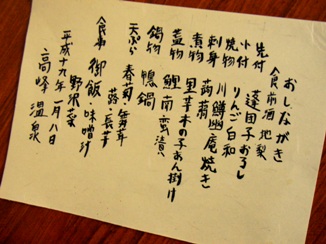 おしながき
食前酒 地梨
先付 蓮団子おろし
小付 りんご白和
焼物 川鱒幽庵焼き
刺身 蒟蒻
煮物 里芋木の子あん掛け
蓋物 鯉南蛮漬
鍋物 鴨鍋
天ぷら 春菊 舞茸
蕗 長芋
食事 御飯・味噌汁
野沢菜
平成十九年 一月八日
高峰温泉